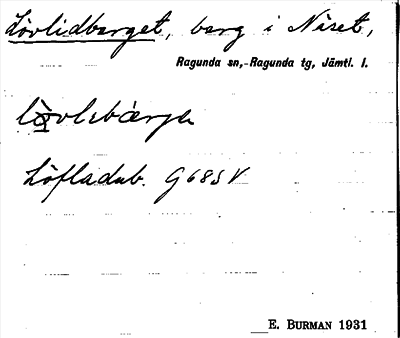 Lövlidberget, berg i Niset,
Ragunda sn,-Ragunda tg, Jämtl. l.
Löfladub. G68SV
E. BURMAN 1931